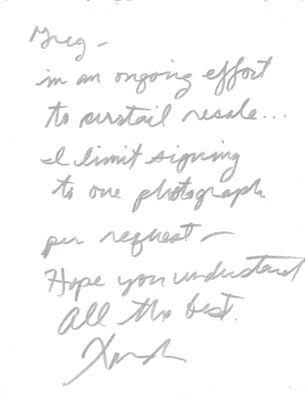 Greg –
in an ongoing effort
to curtail resale...
I limit signing
to one photograph
per request –
Hope you understand
All the best.